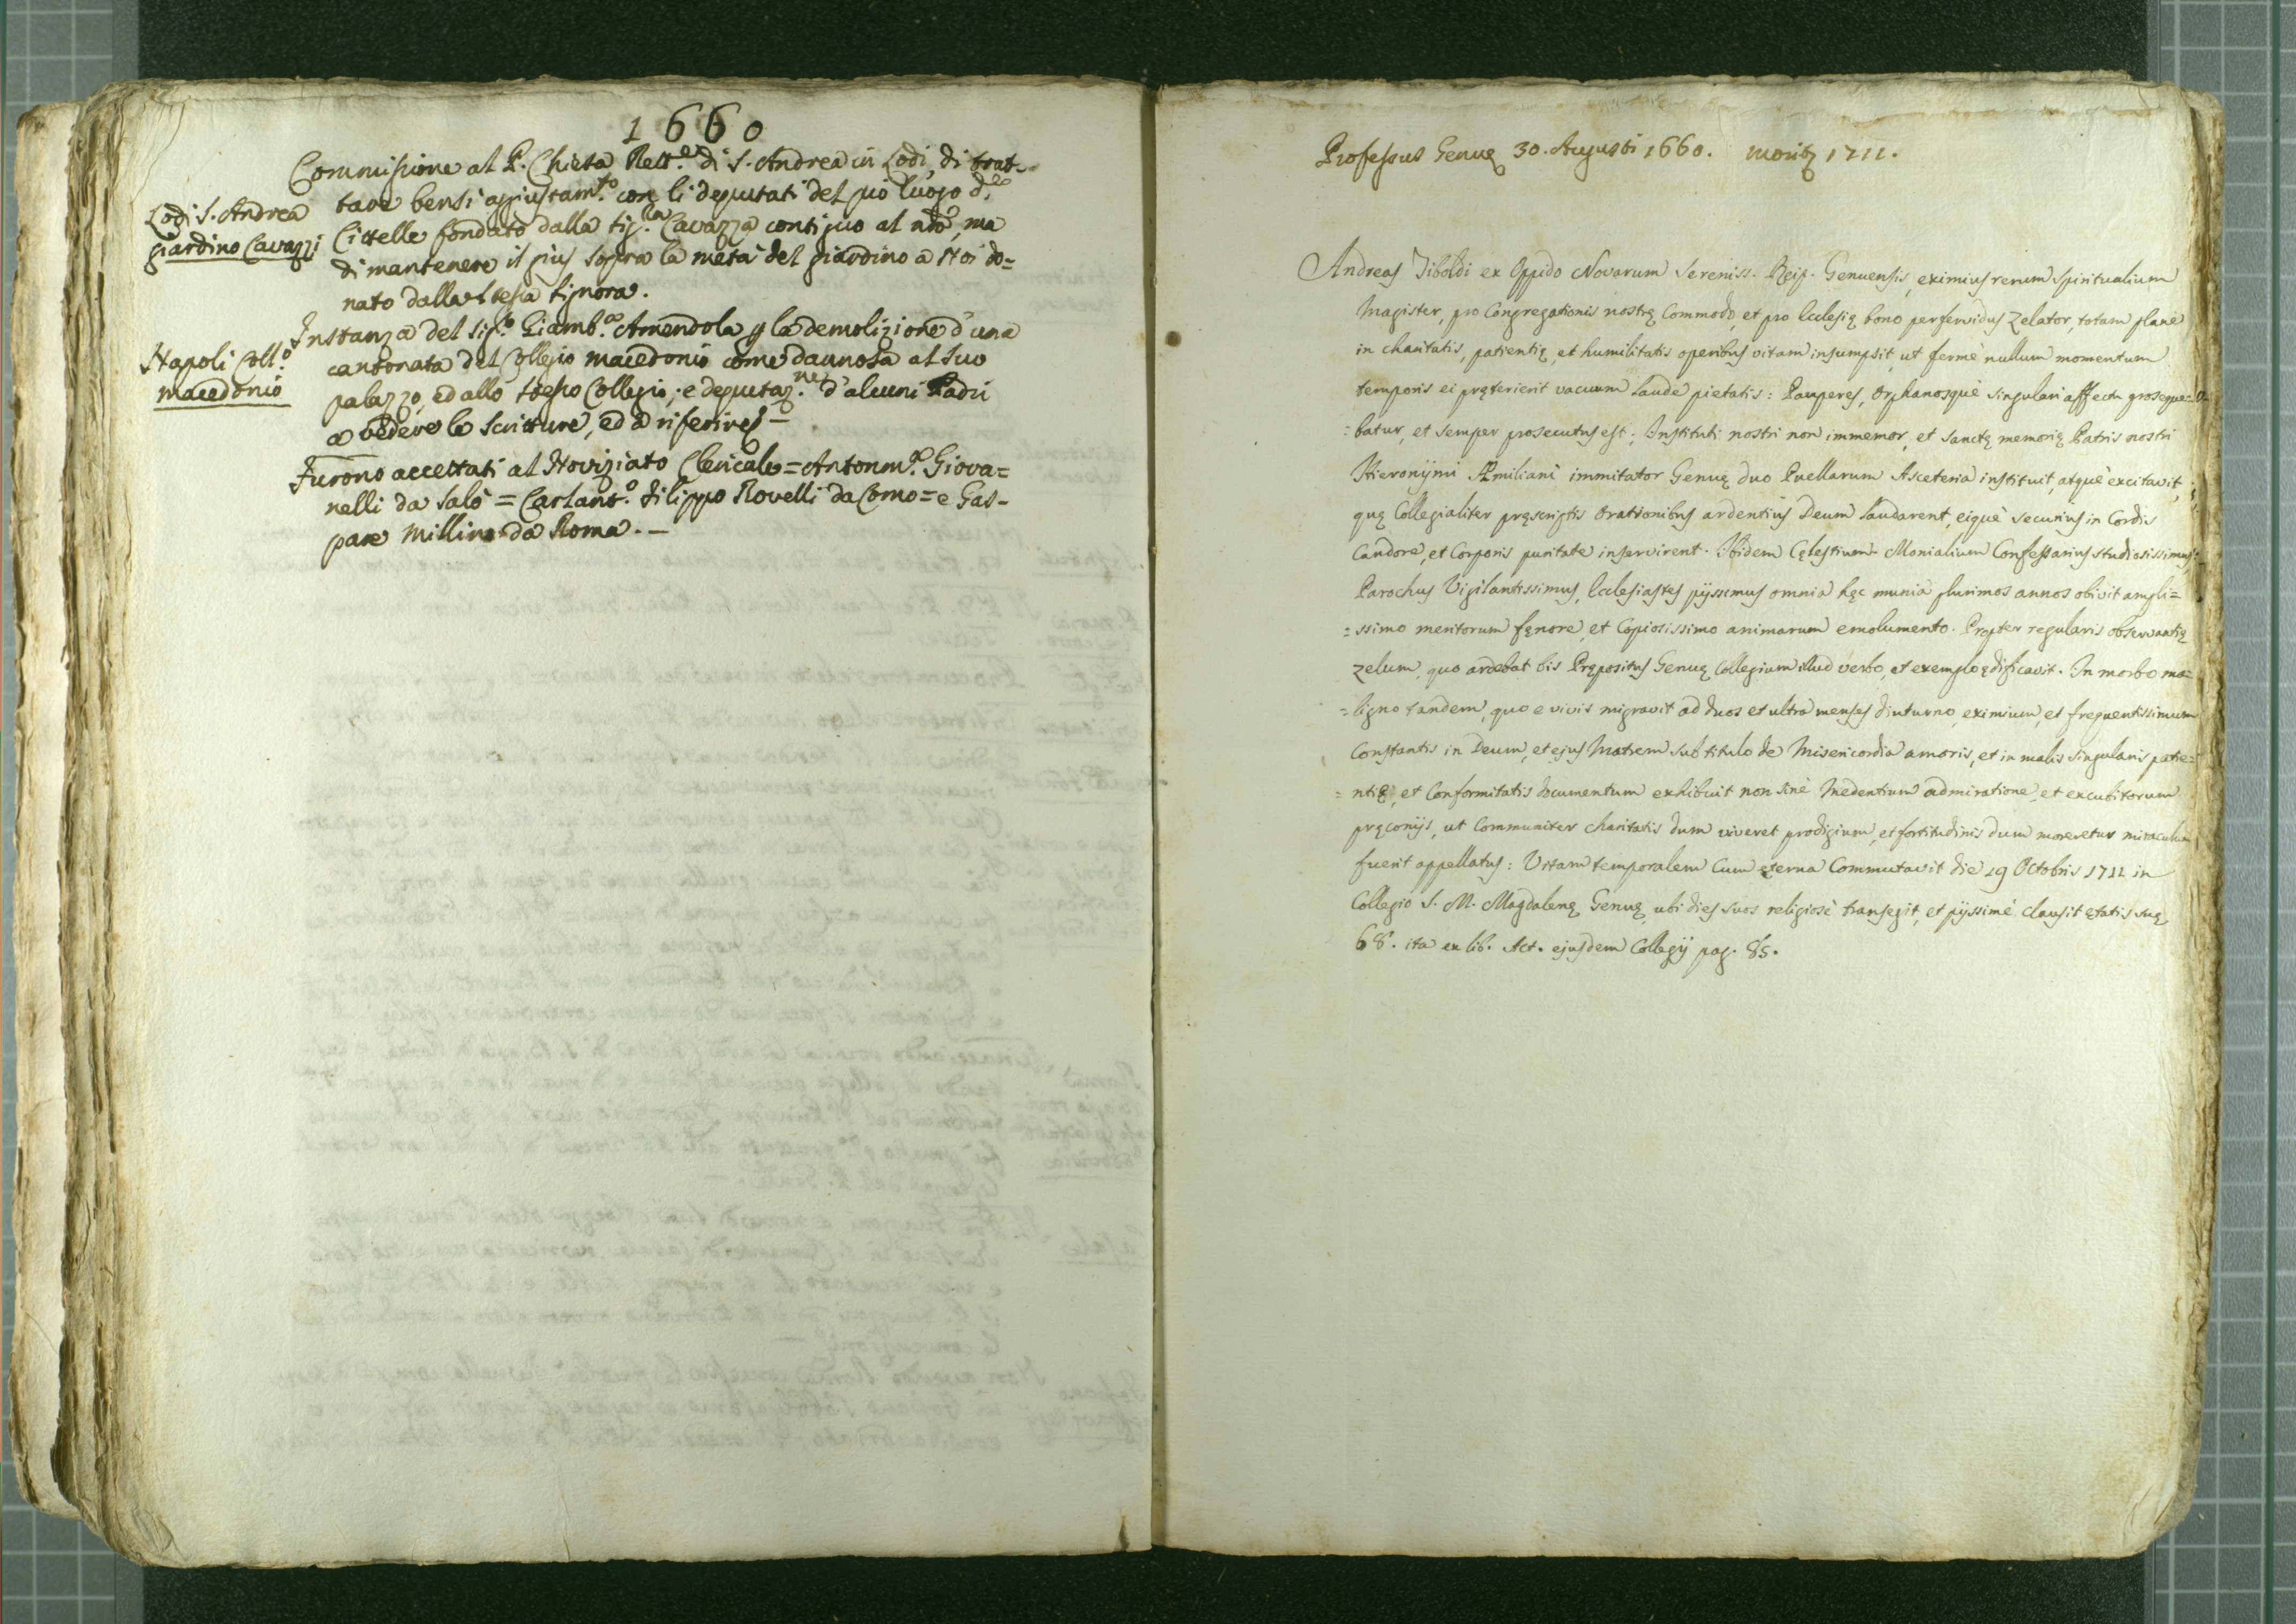 1660
Commissione al P. Chiesa Rett.e di S. Andrea in Lodi, di trat-
Lodi S. Andrea
giardino Cavazzi
tare bensi aggiustam.to con li deputati del pio luogo d.lle
Cittelle fondato dalla sig.ra Cavazza contiguo al nro, ma
di mantenere il gius sopra la metà del giardino a Noi do=
nato dalla stessa signora.
Napoli Coll.o
macedonio
Instanza del sig.r Giamb.a Amendola p la demolizione d'una
cantonata del Collegio macedonio come dannosa al suo
palazzo, ed allo stesso Collegio; e deputaz.ne d'alcuni Padri
a vedere le scritture, ed a riferire -
Furono accettati al Noviziato Clericale = Antonm.a Giova=
nelli da Salò = Carlant.o Filippo Rovelli da Como = e Gas-
pare Millino da Roma. -
Professus Genuę 30. Augusti 1660. moritz 1711.
Andreas Tiboldi ex Oppido Novarum Sereniss. Reip. Genuensis, eximius rerum Spiritualium
Magister, pro Congregationis nostrę Commodo, et pro Ecclesię bono perfervidus Zelator, totam planè
in charitatis, patientię, et humilitatis operibus vitam insumpsit, ut fermè nullum momentum
temporis ei pręterierit vacuum laude pietatis: Pauperes, Orphanosquè singulari affectu proseque=
=batur, et semper prosecutus est; Instituti nostri non immemor, et Sanctę memorię Patris nostri
Hieronijmi Æmiliani immitator Genuę duo Puellarum Asceteria instituit, atquè excitavit,
quę Collegialiter pręscriptis Orationibus ardentius Deum laudarent, eiquè securius in Cordis
Candore, et Corporis puritate inservirent. Ibidem Cęlestium Monialium Confessarius studiosissimus,
Parochus Vigilantissimus, Ecclesiastes pijssimus omnia hęc munia plurimos annos obivit ampli=
=ssimo meritorum fęnore, et Copiosissimo animarum emolumento. Propter regularis observantię
zelum, quo ardebat bis Prępositus Genuę Collegium illud verbo, et exemplo ędificavit. In morbo ma=
=ligno tandem, quo e vivis migravit ad duos et ultra menses diuturno, eximium, et frequentissimum
Constantis in Deum, et ejus Matrem sub titulo de Misericordia amoris, et in malis singularis patie=
=ntię, et Conformitatis documentum exhibuit non sinè Medentium admiratione, et excubitorum
pręconijs, ut Communiter charitatis dum viveret prodigium, et fortitudinis dum moreretur miraculum
fuerit appellatus: Vitam temporalem Cum ęterna Commutavit die 19 Octobris 1711 in
Collegio S. M. Magdalenę Genuę, ubi dies suos religiosè transegit, et pijssimè clausit ętatis suę
68. ita ex lib. Act. ejusdem Collegij pag. 85.